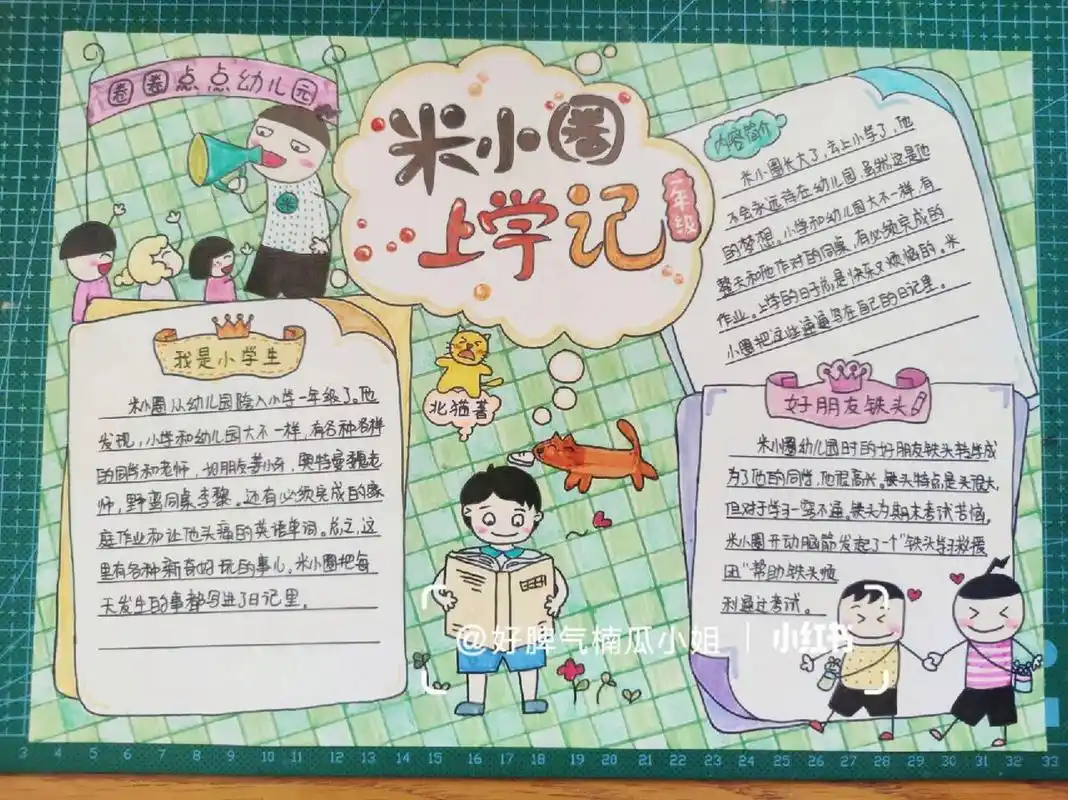 圈圈点点幼儿园
米小圈
上学记
一年级
内容简介
米小圈长大了,去上小学了,他
不会永远待在幼儿园,虽然这是他
的梦想。小学和幼儿园大不一样,有
整天和他作对的同桌,有必须完成的
作业。上学的日子总是快乐又烦恼的。米
小圈把这些通通写在自己的日记里。
我是小学生
米小圈从幼儿园踏入小学一年级了。他
发现,小学和幼儿园大不一样,有各种各样
的同学和老师,如朋友姜小牙,奥特曼魏老
师,野蛮同桌李黎。还有必须完成的家
庭作业和让他头痛的英语单词。总之,这
里有各种新奇好玩的事儿,米小圈把每
天发生的事都写进了日记里。
北猫著
好朋友铁头
米小圈幼儿园时的好朋友铁头转学成
为了他的同学,他很高兴。铁头特点是头很大,
但对于学习一窍不通。铁头为期末考试苦恼,
米小圈开动脑筋发起了一个"铁头学习救援
团"帮助铁头顺
利通过考试。
@好脾气楠瓜小姐 | 小红书
3 4 5 6 7 8 9 10 11 12 13 14 15 16 17 18 19 20 21 22 23 24 25 26 27 28 29 30 31 32 33